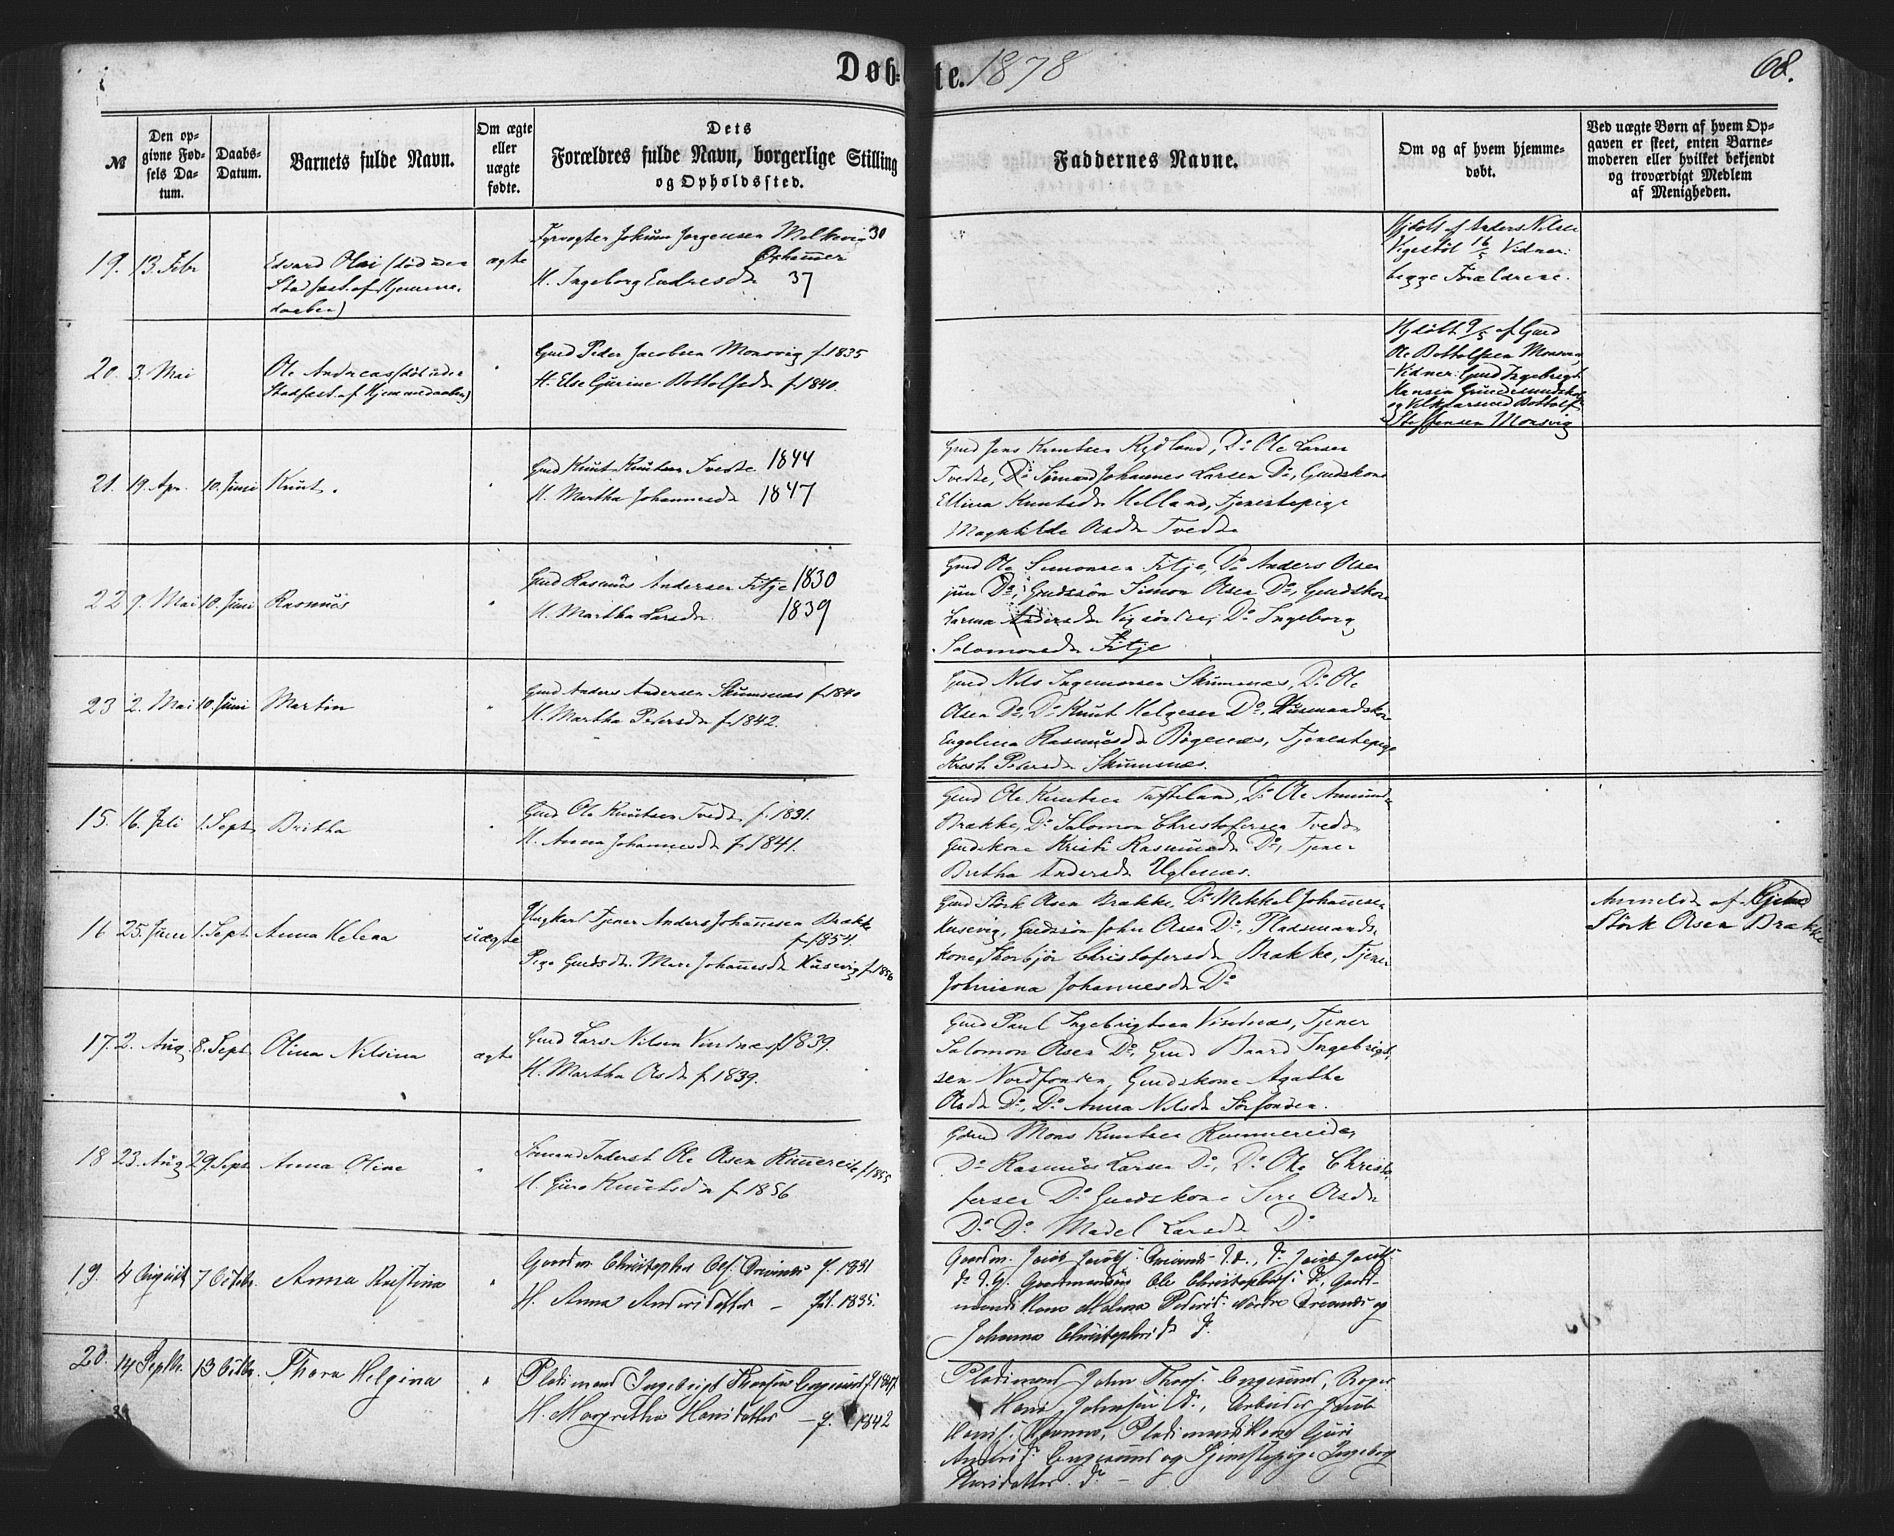 Døb=te. 1878
68.
№
Den op=
givne Fød=
sels Da=
tum.
Daabs=
Datum.
Barnets fulde Navn.
Om ægte
eller
uægte
fødte.
Dets
Forældres fulde Navn, borgerlige Stilling
og Opholdssted.
Faddernes Navne.
Om og af hvem hjemme=
døbt.
Ved uægte Børn af hvem Op=
gaven er skeet, enten Barne=
moderen eller hvilket bekjendt
og troværdigt Medlem
af Menigheden.
19. 13. Febr
Edvard Olai (død uden
Stadfæst. af Hjemme-
daaben)
ægte
Fyrvogter Jokum Jørgensen Melkevig 30
Øxhammer
H. Ingeborg Endresdr 37
Hjdøbt af Anders Nilsen
Vigestøl 16/5 Vidner:
begge Forældrene.
20. 3. Mai
Ole Andreas (død uden
Stadfæst. af Hjemmedaaben)
"
Gmd Peder Jacobsen Monsvig f. 1835
H. Else Gurine Bottolfsdr f. 1840.
Hjdøbt 9/5 af Gmd
Ole Bottolfsen Monsvig
Vidner: Gmd Ingebrigt
Stephensen Monsvig
21. 19. Apr. 10. Juni Knut.
"
Gmd Knut Knutsen Tvedte 1844
H. Martha Johannesdr 1847
Gmd Jens Knutsen Rydland, Do Ole Larsen
Tvedte, Do Sømand Johannes Larsen Do, Gmdskone
Ellina Knutsdr Helland, Tjenestepige
Magthilde Olsdr Tvedte
22 9. Mai 10. Juni Rasmus
"
Gmd Rasmus Andersen Fitje 1830
H. Martha Larsdr 1839
Gmd Ole Simonsen Fitje, Do Anders Olsen
jun Do, Gmdssøn Simon Olsen Do, Gmdskone
Andersdr Do Ingeborg
Salomonsdr Fitje
23 2. Mai 10. Juni Martin
"
Gmd Anders Andersen Skumsnæs f. 1840
H. Martha Pedersdr f. 1842.
Gmd Nils Ingemorsen Skumsnæs, Do Ole
Olsen Do, Do Knut Helgesen Do, Husmandskone
Engelina Rasmusdr Bøgenæs, Tjenestepige
Krist. Pedersdr Skumsnæs.
15. 16. Juli 1. Sept. Britha
"
Gmd Ole Knutsen Tvedt f. 1831.
H. Anna Johannesdr f. 1841.
Gmd Ole Knutsen Tufteland, Do Ole Amunds.
Brække, Do Salomon Christofersen Tvedt
Gmdskone Kristi Rasmusdr Do, Tjener
Britha Andersdr Uglenæs.
16 25. Juni 1. Sept. Anna Helena
uægte
Ungkarl Tjener Anders Johannesen Brække
f. 1854.
Pige Gmdsdr. Mari Johannesdr Kusevig f. 1856
Gmd Størk Olsen Brække, Do Mekkel Johannesen
Kusevig, Gmdssøn John Olsen Do, Pladsmands-
kone Thorbjør Christofersdr Brække, Tjener
Johnina Johannesdr Do
Anmeldt af Gjetmd
Størk Olsen Brække
17. 2. Aug 8. Sept. Olina Nilsina
ægte
Gmd Lars Nilsen Vindnæs f. 1839.
H. Martha Olsdr f. 1839.
Gmd Paul Ingebrigtsen Vindnæs, Tjener
Salomon Olsen Do, Gmd Baard Ingebrigt-
sen Nordfonden, Gmdskone Agathe
Olsdr Do, Do Anna Nilsdr Sørfonden.
18 23. Aug 29. Sept Anna Oline
"
Sømand Inderst Ole Olsen Rimereide f. 1855
H. Guro Knutsdr f. 1856
Gmd Mons Knutsen Rimmereide,
Do Rasmus Larsen Do, Do Ole Christo-
fersen Do Gmdskone Siri Olsdr
Do Do Madel Larsdr Do
19. 4 August 7 Octobr. Anna Kristina
"
Gaardm. Christopher Ols. f. 1831
H. Anna Andersdatter – fd. 1835.
Gaardm. Jacob Jacobs.
Gaardmandssøn Ole Christophers: Do, Gaard-
mands Kone
Johanna Christophersdr Do.
20. 14 Septbr. 13 Octbr. Thora Helgina
"
Pladsmand Ingebrigt Thorsen Engesund f. 1847.
H. Margretha Hansdatter – f. 1842
Pladsmand John Thors. Engesund,
Hans Johnsen Do, Arbeider Jacob
Hans. Pladsmands Kone Guri
Anders Dr Engesund og Tjenestepige Ingeborg
Thorsdatter Do –